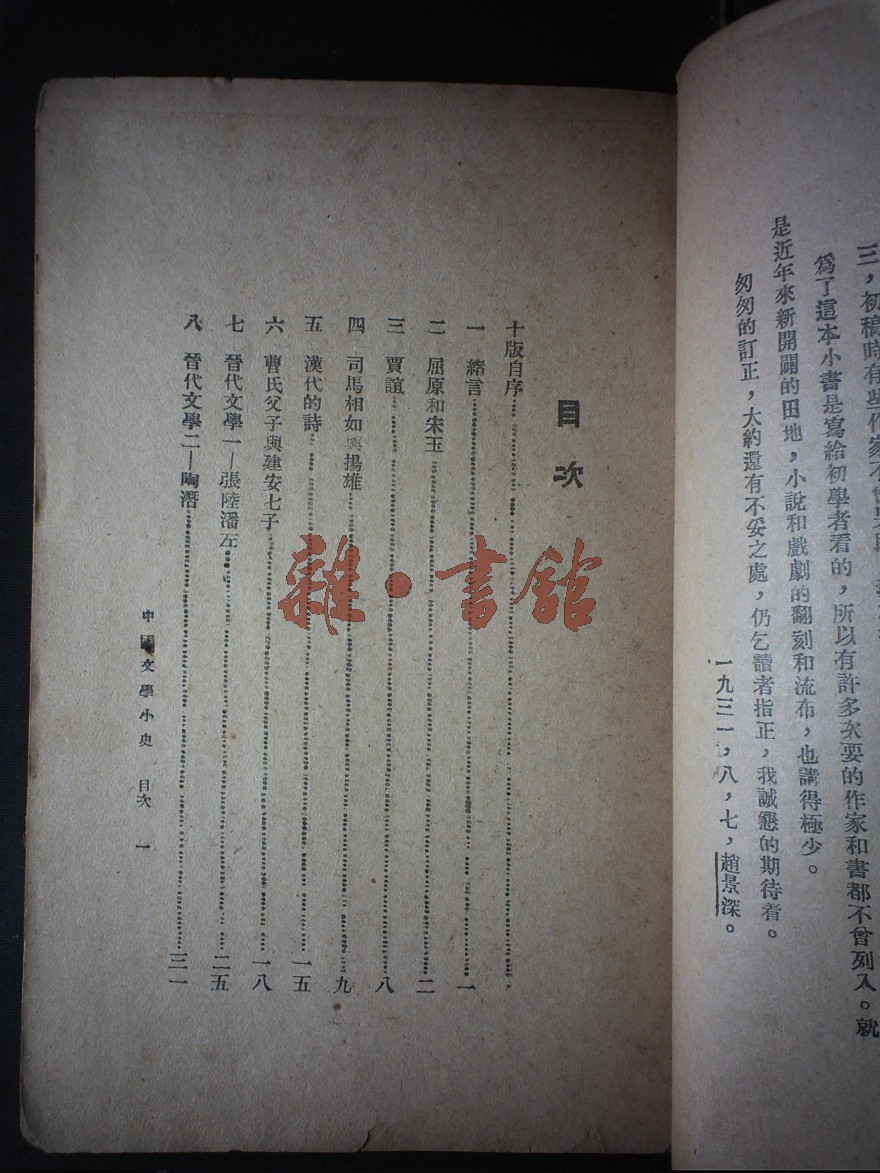 三，初稿時有些作家不曾
爲了這本小書是寫給初學者看的，所以有許多次要的作家和書都不曾列入。就
是近年來新開闢的田地，小說和戲劇的翻刻和流布，也講得極少。
匆匆的訂正，大約還有不妥之處，仍乞讀者指正，我誠懇的期待着。
一九三一，八，七，趙景深。
目次
十版自序
一 緒言 一
二 屈原和宋玉 二
三 賈誼 八
四 司馬相如與揚雄 九
五 漢代的詩 一五
六 曹氏父子與建安七子 一八
七 晉代文學一—張陸潘左 二五
八 晉代文學二—陶潛 三一
中國文學小史 目次 一
雜·書館